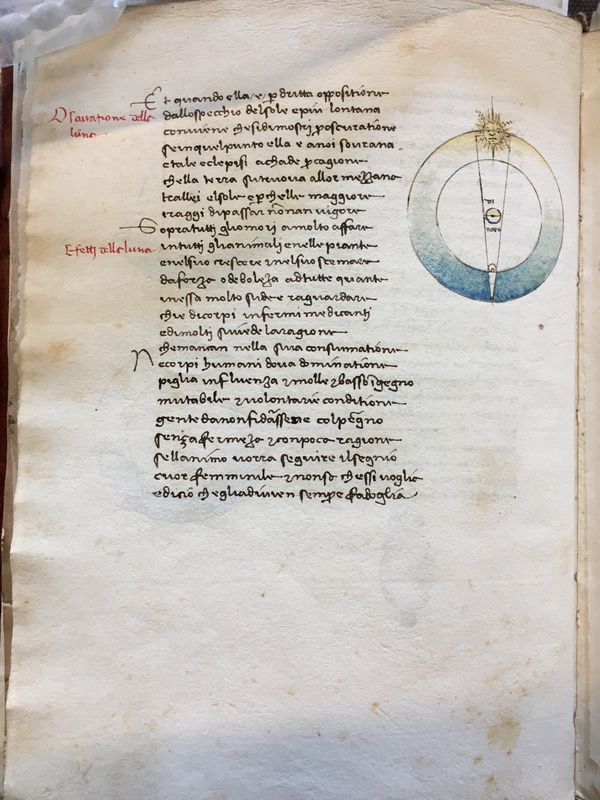 Et quando ella e p dritta oppositione
Oscuratione della
luna
dallospecchio delsole epiu lontana
conviene chesidimostri poscuratione
seinquelpunto ella e anoi sovrana
etale eclepisi achade pcagione
chella terra sitruova allor mezzana
trallei elsole epchelle maggiore
iraggi dipassar nonan vigore
Sopratutti gliomori amolto affare
Effetti della luna
intutti glianimali enelle piante
enelsuo crescere enelsuo scemare
daforza odeboleza adtutte quante
inessa molto side raguardare
chie dicorpi infermi medicanti
edimolti sivede laragione
chemancan nella sua consumatione
Necorpi humani dova dominatione
piglia influenza emolle ebasso igegno
mutabile evolontarie conditione
gente danonfidassene colpegno
senza fermeza econpoca ragione
sellanimo vorra seguire ilsegnio
cuor femminile enonso chessi voglia
edicio chegliadiiven sempre fadoglia